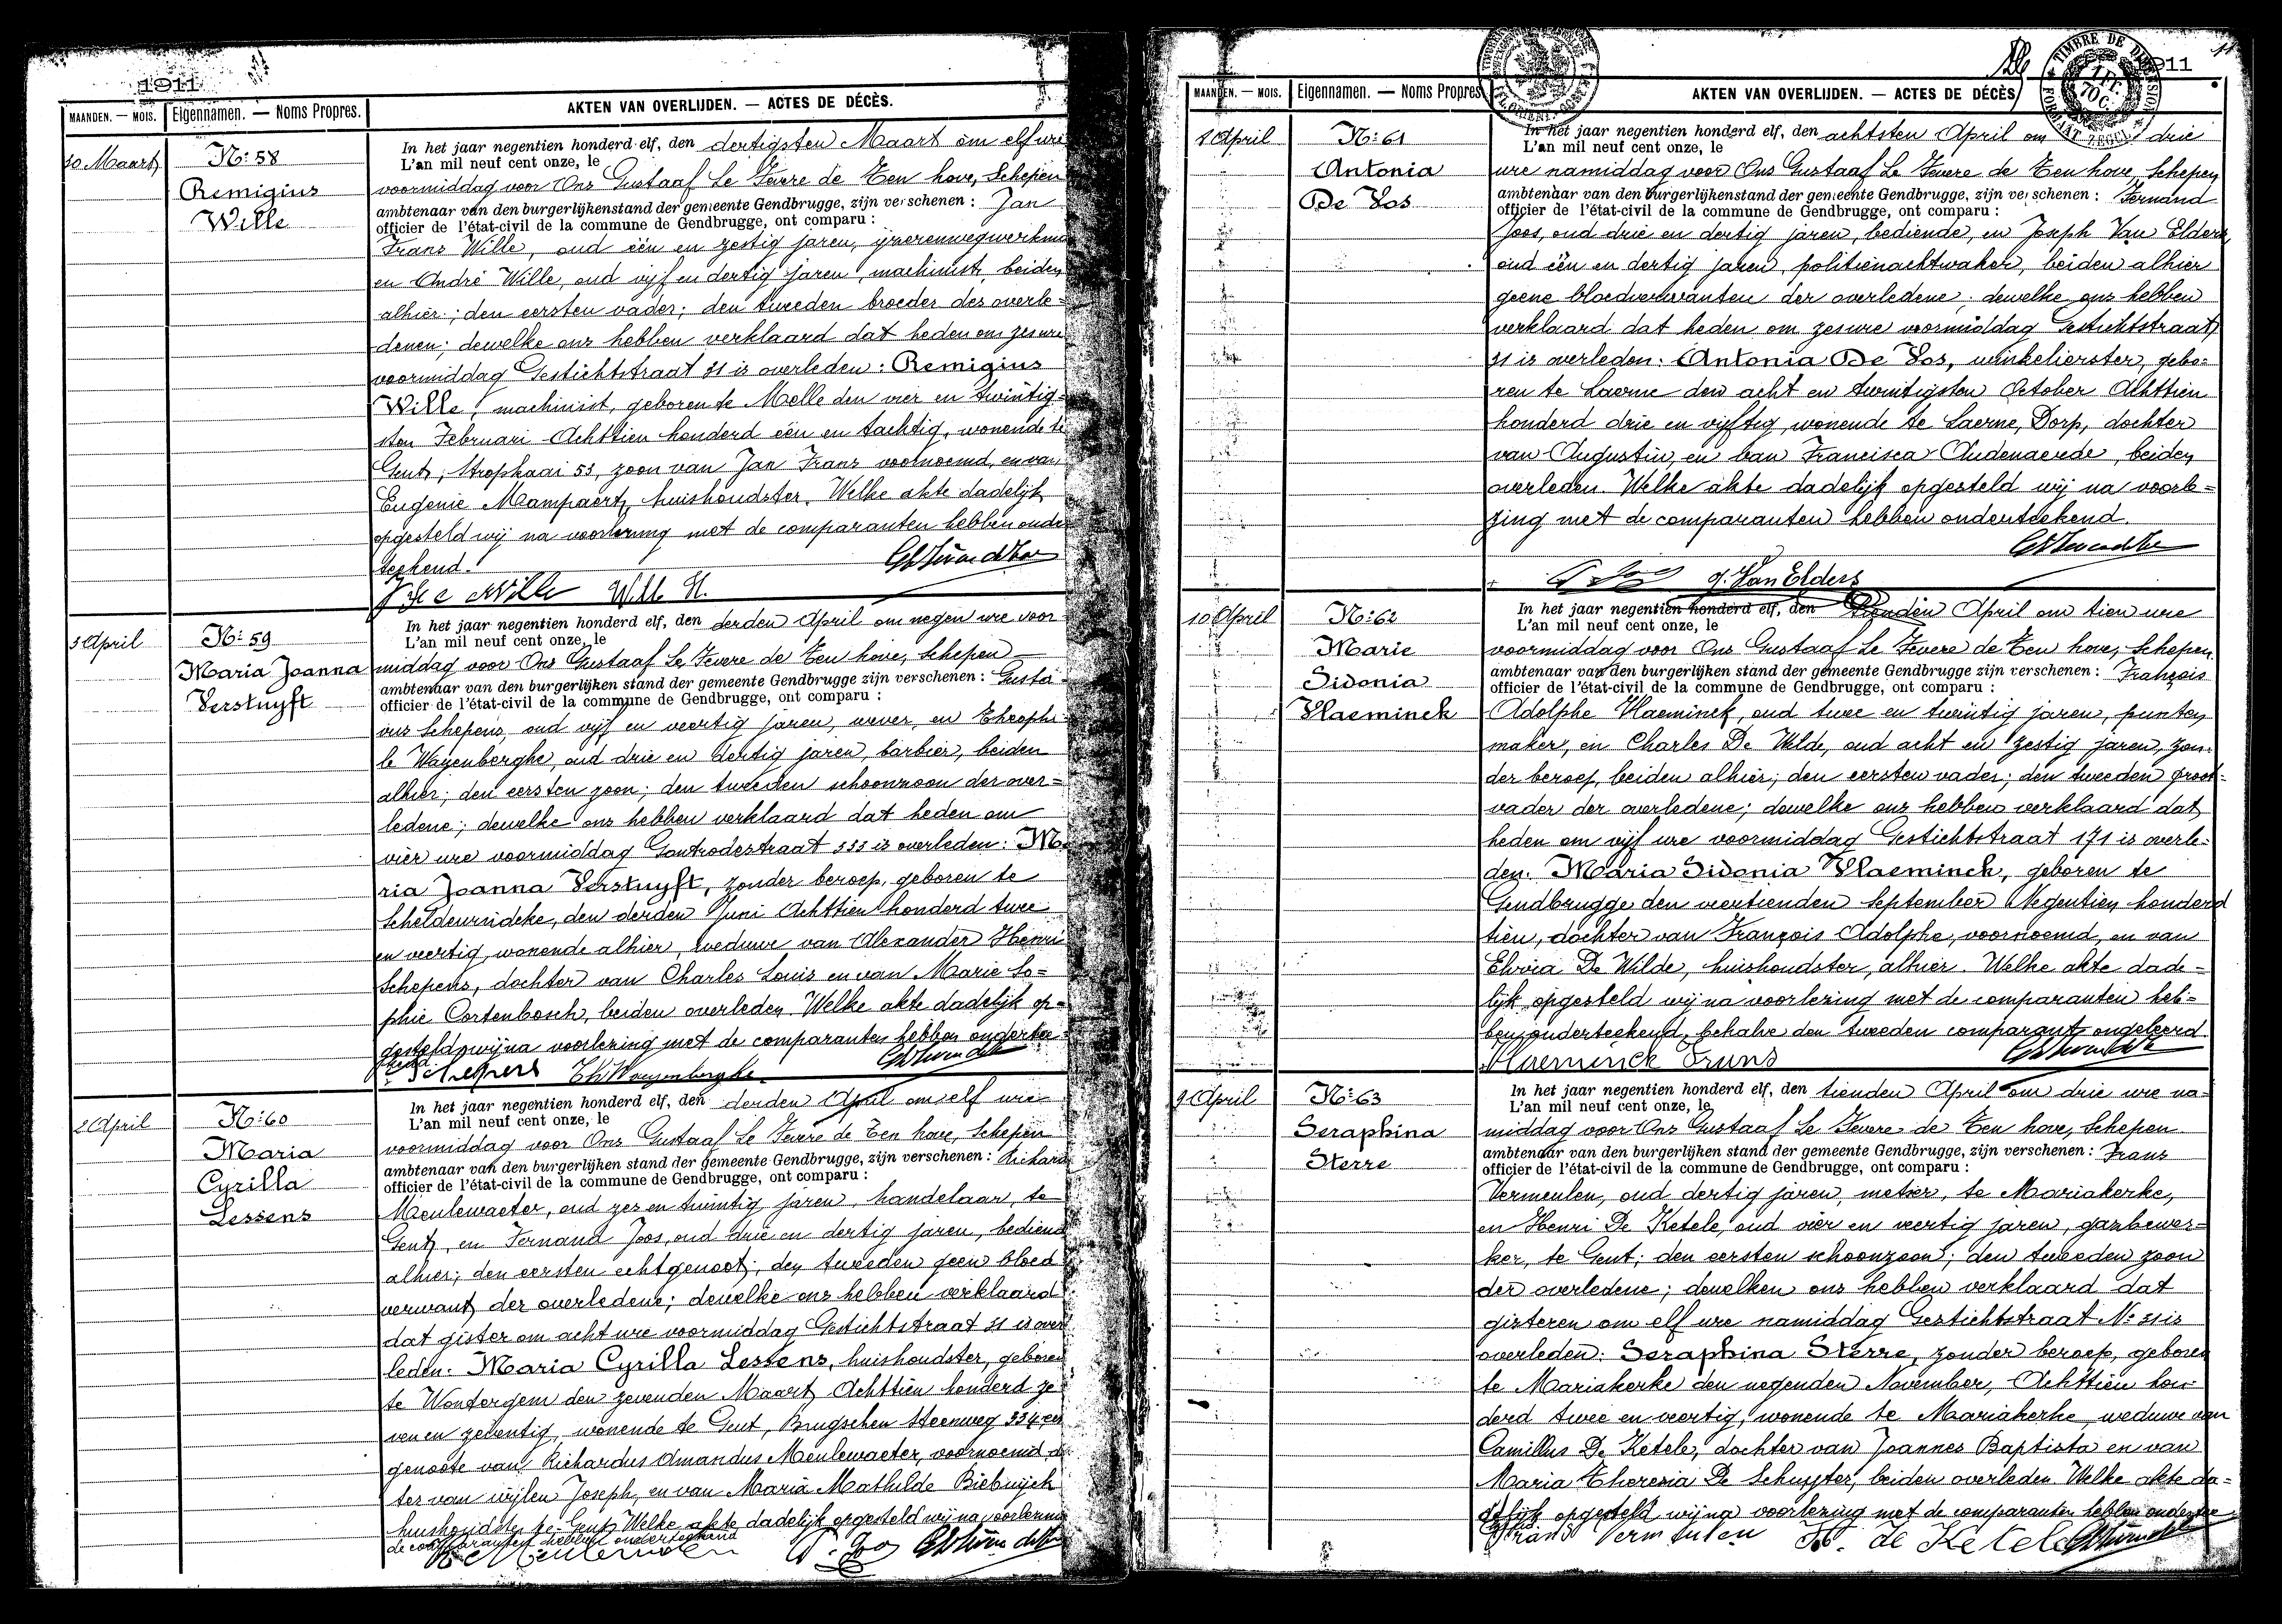 1911
MAANDEN. — MOIS.
Eigennamen. — Noms Propres.
AKTEN VAN OVERLIJDEN. — ACTES DE DÉCÈS.
30 Maart
N: 58
Remigius
Wille
In het jaar negentien honderd elf, den dertigsten Maart om elf ure
L'an mil neuf cent onze, le
voormiddag voor Ons Gustaaf Le Fevere de Ten hove, Schepen
ambtenaar van den burgerlijkenstand der gemeente Gendbrugge, zijn verschenen : Jan
officier de l'état-civil de la commune de Gendbrugge, ont comparu :
Frans Wille, oud één en zestig jaren, ijzerenwegwerkma
en André Wille, oud vijf en dertig jaren, machinist, beiden
alhier; den eersten vader; den tweeden broeder des overle=
denen; dewelke ons hebben verklaard dat heden om zes ure
voormiddag Gestichtstraat 31 is overleden: Remigius
Wille, machinist, geboren te Melle den vier en twintig=
sten Februari Achttien honderd één en tachtig, wonende te
Gent, Stropkaai 53, zoon van Jan Frans voornoemd, en van
Eugenie Mampaert, huishoudster. Welke akte dadelijk
opgesteld wij na voorlezing met de comparanten hebben onder
teekend.
Wille
3 April
N: 59
Maria Joanna
Verstuyft
In het jaar negentien honderd elf, den derden April om negen ure voor
L'an mil neuf cent onze, le
middag voor Ons Gustaaf Le Fevere de Ten hove, Schepen
ambtenaar van den burgerlijken stand der gemeente Gendbrugge zijn verschenen : Gusta
officier de l'état-civil de la commune de Gendbrugge, ont comparu :
vus Schepens, oud vijf en veertig jaren, wever, en Theophi
le Wayenberghe, oud drie en dertig jaren, barbier, beiden
alhier; den eersten zoon; den tweeden schoonzoon der over=
ledene; dewelke ons hebben verklaard dat heden om
vier ure voormiddag Gontrodestraat 333 is overleden: Ma
ria Joanna Verstuyft, zonder beroep, geboren te
Scheldewindeke, den derden Juni Achttien honderd twee
en veertig, wonende alhier, weduwe van Alexander Henri
Schepens, dochter van Charles Louis en van Marie So=
phie Cortenbosch, beiden overleden. Welke akte dadelijk op=
gesteld wij na voorlezing met de comparanten hebben onderte
kend
Schepens Th Wayenberghe
2 April
N: 60
Maria
Cyrilla
Lessens
In het jaar negentien honderd elf, den derden April om elf ure
L'an mil neuf cent onze, le
voormiddag voor Ons Gustaaf Le Fevere de Ten hove, Schepen
ambtenaar van den burgerlijken stand der gemeente Gendbrugge, zijn verschenen : Richard
officier de l'état-civil de la commune de Gendbrugge, ont comparu :
Meulewaeter, oud zes en twintig jaren, handelaar, te
Gent, en Fernand Joos, oud drie en dertig jaren, bediend
alhier; den eersten echtgenoot; den tweeden geen bloed
verwant der overledene; dewelke ons hebben verklaard
dat gister om acht ure voormiddag Gestichtstraat 31 is over
leden: Maria Cyrilla Lessens, huishoudster, geboren
te Wontergem den zevenden Maart Achttien honderd ze
ven en zeventig, wonende te Gent, Brugschen Steenweg 334, ech
genoote van Richardus Amandus Meulewaeter, voornoemd, doch
ter van wijlen Joseph, en van Maria Mathilde Biebuyck
huishoudster te Gent. Welke akte dadelijk opgesteld wij na voorlezing
de comparanten hebben onderteekend
1911
MAANDEN. — MOIS.
Eigennamen. — Noms Propres.
AKTEN VAN OVERLIJDEN. — ACTES DE DÉCÈS
TIMBRE DE DIMENSION
8 April
N: 61
Antonia
De Vos
In het jaar negentien honderd elf, den achtsten April om drie
L'an mil neuf cent onze, le
ure namiddag voor Ons Gustaaf Le Fevere de Ten hove, Schepen
ambtenaar van den burgerlijkenstand der gemeente Gendbrugge, zijn verschenen : Fernand
officier de l'état-civil de la commune de Gendbrugge, ont comparu :
Joos, oud drie en dertig jaren, bediende, en Joseph Van Elders
oud één en dertig jaren, politienachtwaker, beiden alhier
geene bloedverwanten der overledene; dewelke ons hebben
verklaard dat heden om zes ure voormiddag Gestichtstraat
31 is overleden: Antonia De Vos, winkelierster, gebo=
ren te Laerne den acht en twintigsten October Achttien
honderd drie en vijftig, wonende te Laerne, Dorp, dochter
van Augustin, en van Francisca Audenaerde, beiden
overleden. Welke akte dadelijk opgesteld wij na voorle=
zing met de comparanten hebben onderteekend.
J. Van Elders
10 April
N: 62
Marie
Sidonia
Vlaeminck
In het jaar negentien honderd elf, den tienden April om tien ure
L'an mil neuf cent onze, le
voormiddag voor Ons Gustaaf Le Fevere de Ten hove, Schepen
ambtenaar van den burgerlijken stand der gemeente Gendbrugge zijn verschenen : François
officier de l'état-civil de la commune de Gendbrugge, ont comparu :
Adolphe Vlaeminck, oud twee en twintig jaren, punten
maker, en Charles De Wilde, oud acht en zestig jaren, zon=
der beroep, beiden alhier; den eersten vader; den tweeden groot=
vader der overledene; dewelke ons hebben verklaard dat
heden om vijf ure voormiddag Gestichtstraat 171 is overle=
den. Maria Sidonia Vlaeminck, geboren te
Gendbrugge den veertienden September Negentien honderd
tien, dochter van François Adolphe, voornoemd, en van
Elvria De Wilde, huishoudster, alhier. Welke akte dade=
lijk opgesteld wij na voorlezing met de comparanten heb=
ben onderteekend, behalve den tweeden comparant ongeleerd.
Vlaeminck Frans
9 April
N: 63
Seraphina
Sterre
In het jaar negentien honderd elf, den tienden April om drie ure na=
L'an mil neuf cent onze, le
middag voor Ons Gustaaf Le Fevere de Ten hove, Schepen
ambtenaar van den burgerlijken stand der gemeente Gendbrugge, zijn verschenen : Frans
officier de l'état-civil de la commune de Gendbrugge, ont comparu :
Vermeulen, oud dertig jaren, metser, te Mariakerke,
en Henri De Ketele, oud vier en veertig jaren, gazbewer=
ker, te Gent; den eersten schoonzoon; den tweeden zoon
der overledene; dewelken ons hebben verklaard dat
gisteren om elf ure namiddag Gestichtstraat N: 31 is
overleden: Seraphina Sterre, zonder beroep, geboren
te Mariakerke den negenden November, Achttien hon=
derd twee en veertig, wonende te Mariakerke, weduwe van
Camillus De Ketele, dochter van Joannes Baptista en van
Maria Theresia De Schuyter, beiden overleden. Welke akte da=
delijk opgesteld wij na voorlezing met de comparanten hebben ondertee
Frans Vermeulen H. de Ketele